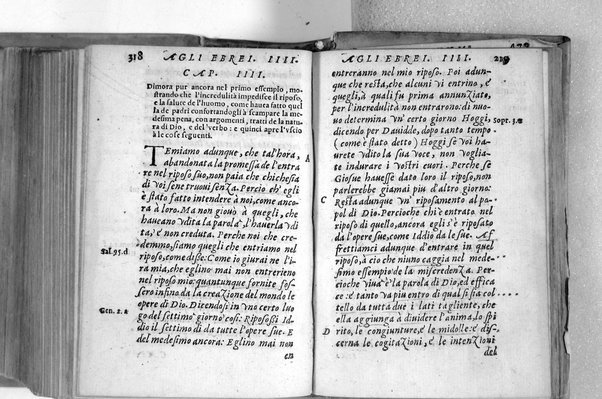 318
AGLI EBREI. IIII.
CAP. IIII.
Dimora pur ancora nel primo essempio, mo-
strando che l'incredulità impedisce il riposo,
e la salute de l'huomo, come haueua fatto quel
la de padri confortandogli à scampare la me-
desima pena, con argomenti, tratti de la natu
ra di Dio, e del verbo: e quinci apre l'vscio
à le cose seguenti.
TEmiamo adunque, che tal'hora,
abandonata la promessa de l'entra
re nel riposo suo, non paia che chichesia
di voi sene truoui senza. Percio ch' egli
è stato fatto intendere à noi, come anco-
ra à loro. Ma non giouò à quegli, che
haueano vdita la parola, l'hauerla vdi-
ta, nò è non creduta. Perche noi che cre-
demmo, siamo quegli che entriamo nel
riposo, come disse: Come io giurai ne l'i-
ra mia, che eglino mai non entrerieno
nel riposo mio: quantunque fornite fos-
sero infino da la creazione del mondo le
opere di Dio. Dicendosi in vno certo luo-
go del settimo giorno cosi: Riposossi Id-
dio il settimo dì da tutte l'opere sue. E
del medesimo ancora: Eglino mai non
en
A
Sal. 95. d
Gen. 2. a
AGLI EBREI. IIII.
219
entreranno nel mio riposo. Poi adun-
que che resta, che alcuni vi entrino, e
quegli, à quali fu prima annunziato,
per l'incredulità non entrarono: di nuo-
uo determina vn' certo giorno Hoggi,
dicendo per Dauidde, dopo tanto tempo
(come è stato detto) Hoggi se voi ha-
urete vdito la sua voce, non vogliate
indurare i vostri cuori. Perche se
Giosue hauesse dato loro il riposo, non
parlerebbe giamai piu d'altro giorno:
Resta adunque vn' riposamento al po-
pol di Dio. Percioche chi è entrato nel
riposo di quello, ancora egli s'è riposato
da l'opere sue, come Iddio da le sue. Af
frettiamci adunque d'entrare in quel
riposo, à cio che niuno caggia nel mede-
simo essempio de la miscredenza. Per-
cioche viua è la parola di Dio, ed effica
ce: è tanto va piu entro di qual si sia col-
tello da tutta due i lati tagliente, che
ella aggiunga à diuidere l'anima, lo spi
rito, le congiunture, e le midolle: e dis-
cerna le cogitazioni, e le intenzioni
del
Sopr. 3. c
C
D